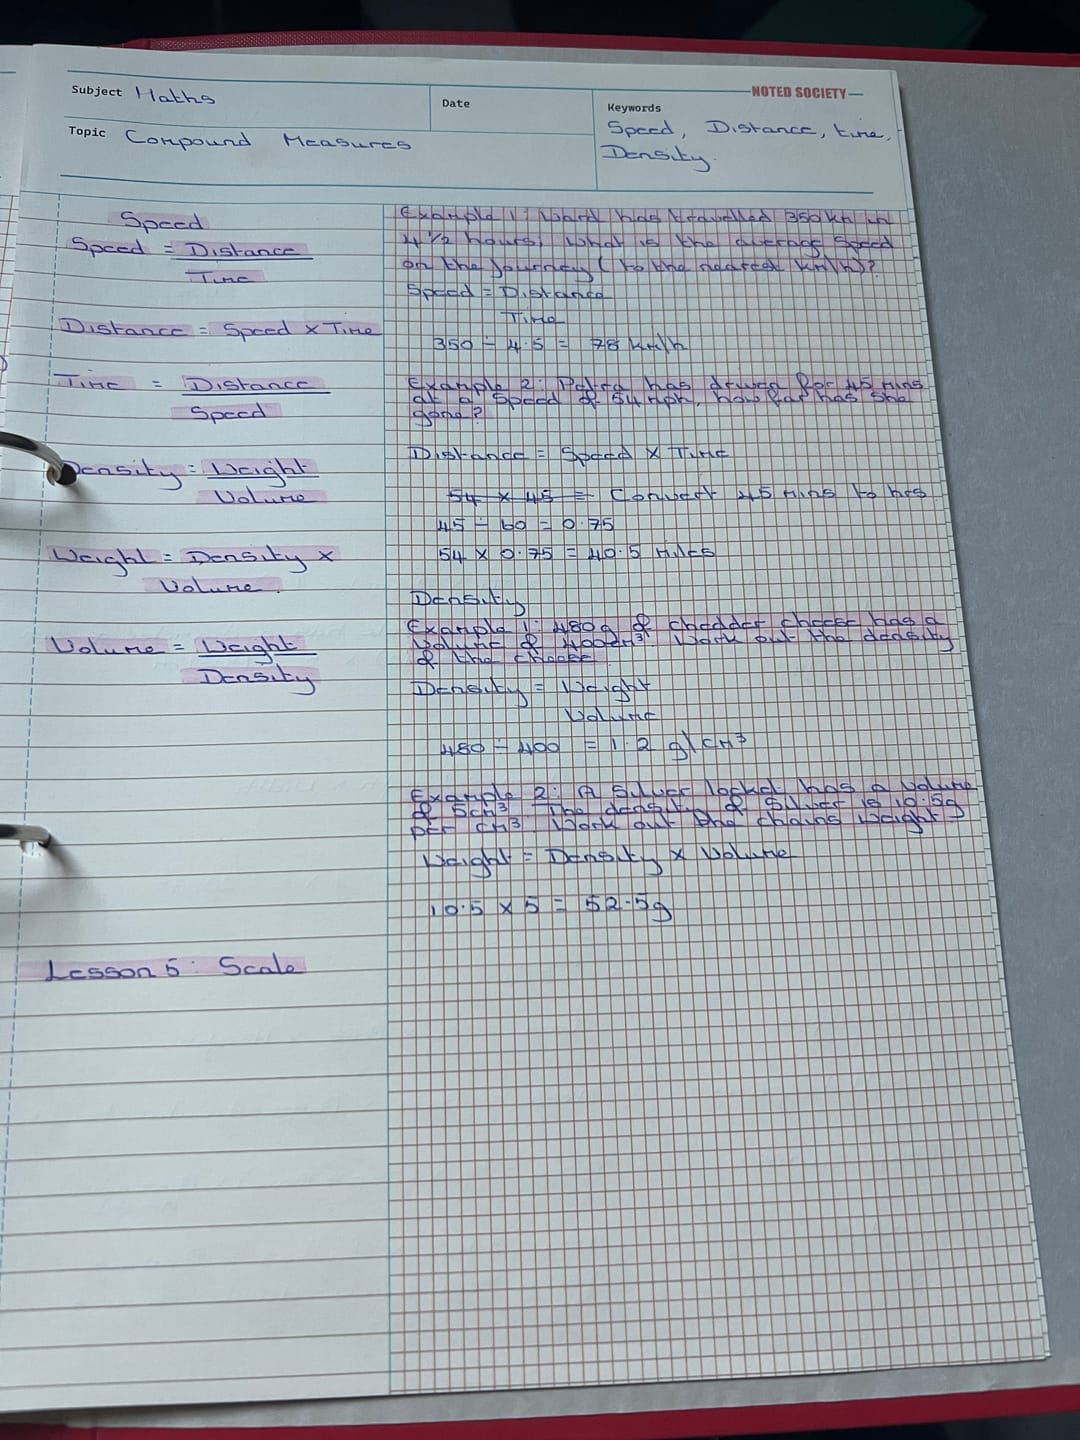 NOTED SOCIETY
Subject Maths
Date
Keywords
Speed, Distance, time,
Density.
Topic Compound Measures
Speed
Speed = Distance
Time
Distance = Speed x Time
Time = Distance
Speed
Density = Weight
Volume
Weight = Density x
Volume.
Volume = Weight
Density
Lesson 5: Scale
Example 1: Ward has travelled 350km in
4 1/2 hours. What is the average speed
on the journey (to the nearest km/h)?
Speed = Distance
Time
350 ÷ 4.5 = 78 km/h
Example 2: Petra has driven for 45 mins
at a speed of 54 mph, how far has she
gone?
Distance = Speed x Time
54 x 45 = Convert 45 mins to hrs
45 ÷ 60 = 0.75
54 x 0.75 = 40.5 miles
Density
Example 1: 480g of chedder cheese has a
volume of 400cm³. Work out the density
of the cheese.
Density = Weight
Volume
480 ÷ 400 = 1.2 g/cm³
Example 2: A Silver locket has a volume
of 5cm³. The density of Silver is 10.5g
per cm³. Work out the chains weight
Weight = Density x Volume
10.5 x 5 = 52.5g